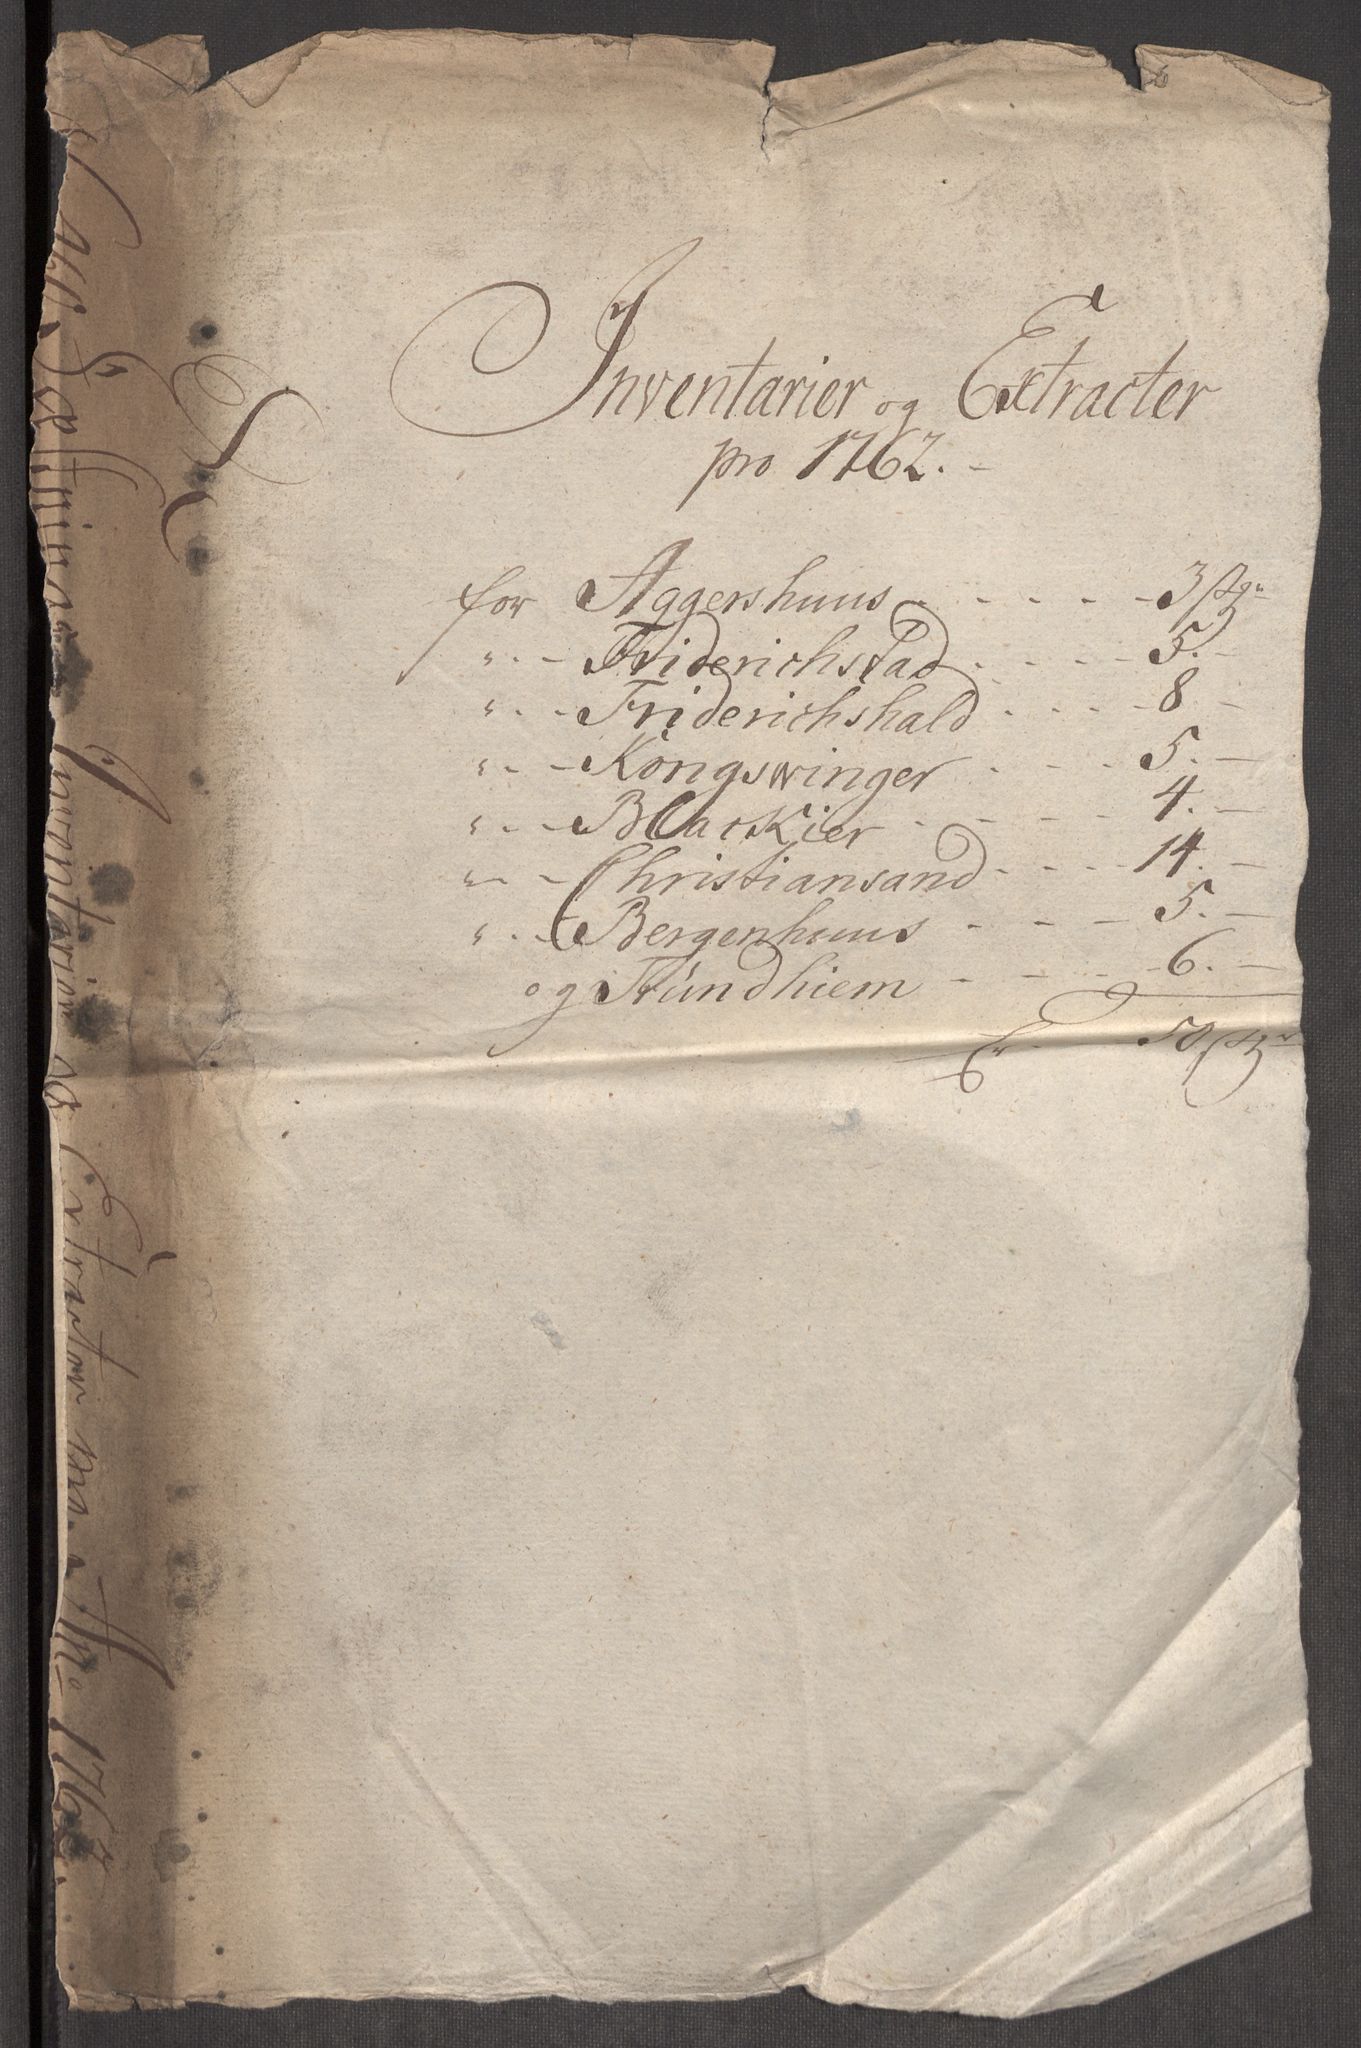 Inventarier og Extracter
pro 1762.
for Aggershuus - - - - - 3
" - - Friderichstad - - - - 5. -
" - - Friderichshald - - - - 8 -
" - - Kongswinger - - - 5. -
" - - Blackier - - - - 4. -
" - - Christiansand - - - 14. -
" - - Bergenhuus - - - - 5. -
og Trundhiem - - - - 6. -
Er - - - 50
Inventarier og Extracter pro Anno 1762.